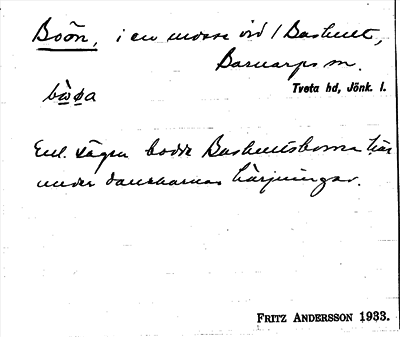 Boön, i en mosse vid / Bashult,
Barnarps sn.
Tveta hd, Jönk. l.
bωøa
Enl. sägen bodde Bashultsborna här
under danskarnas härjningar.
FRITZ ANDERSSON 1933.